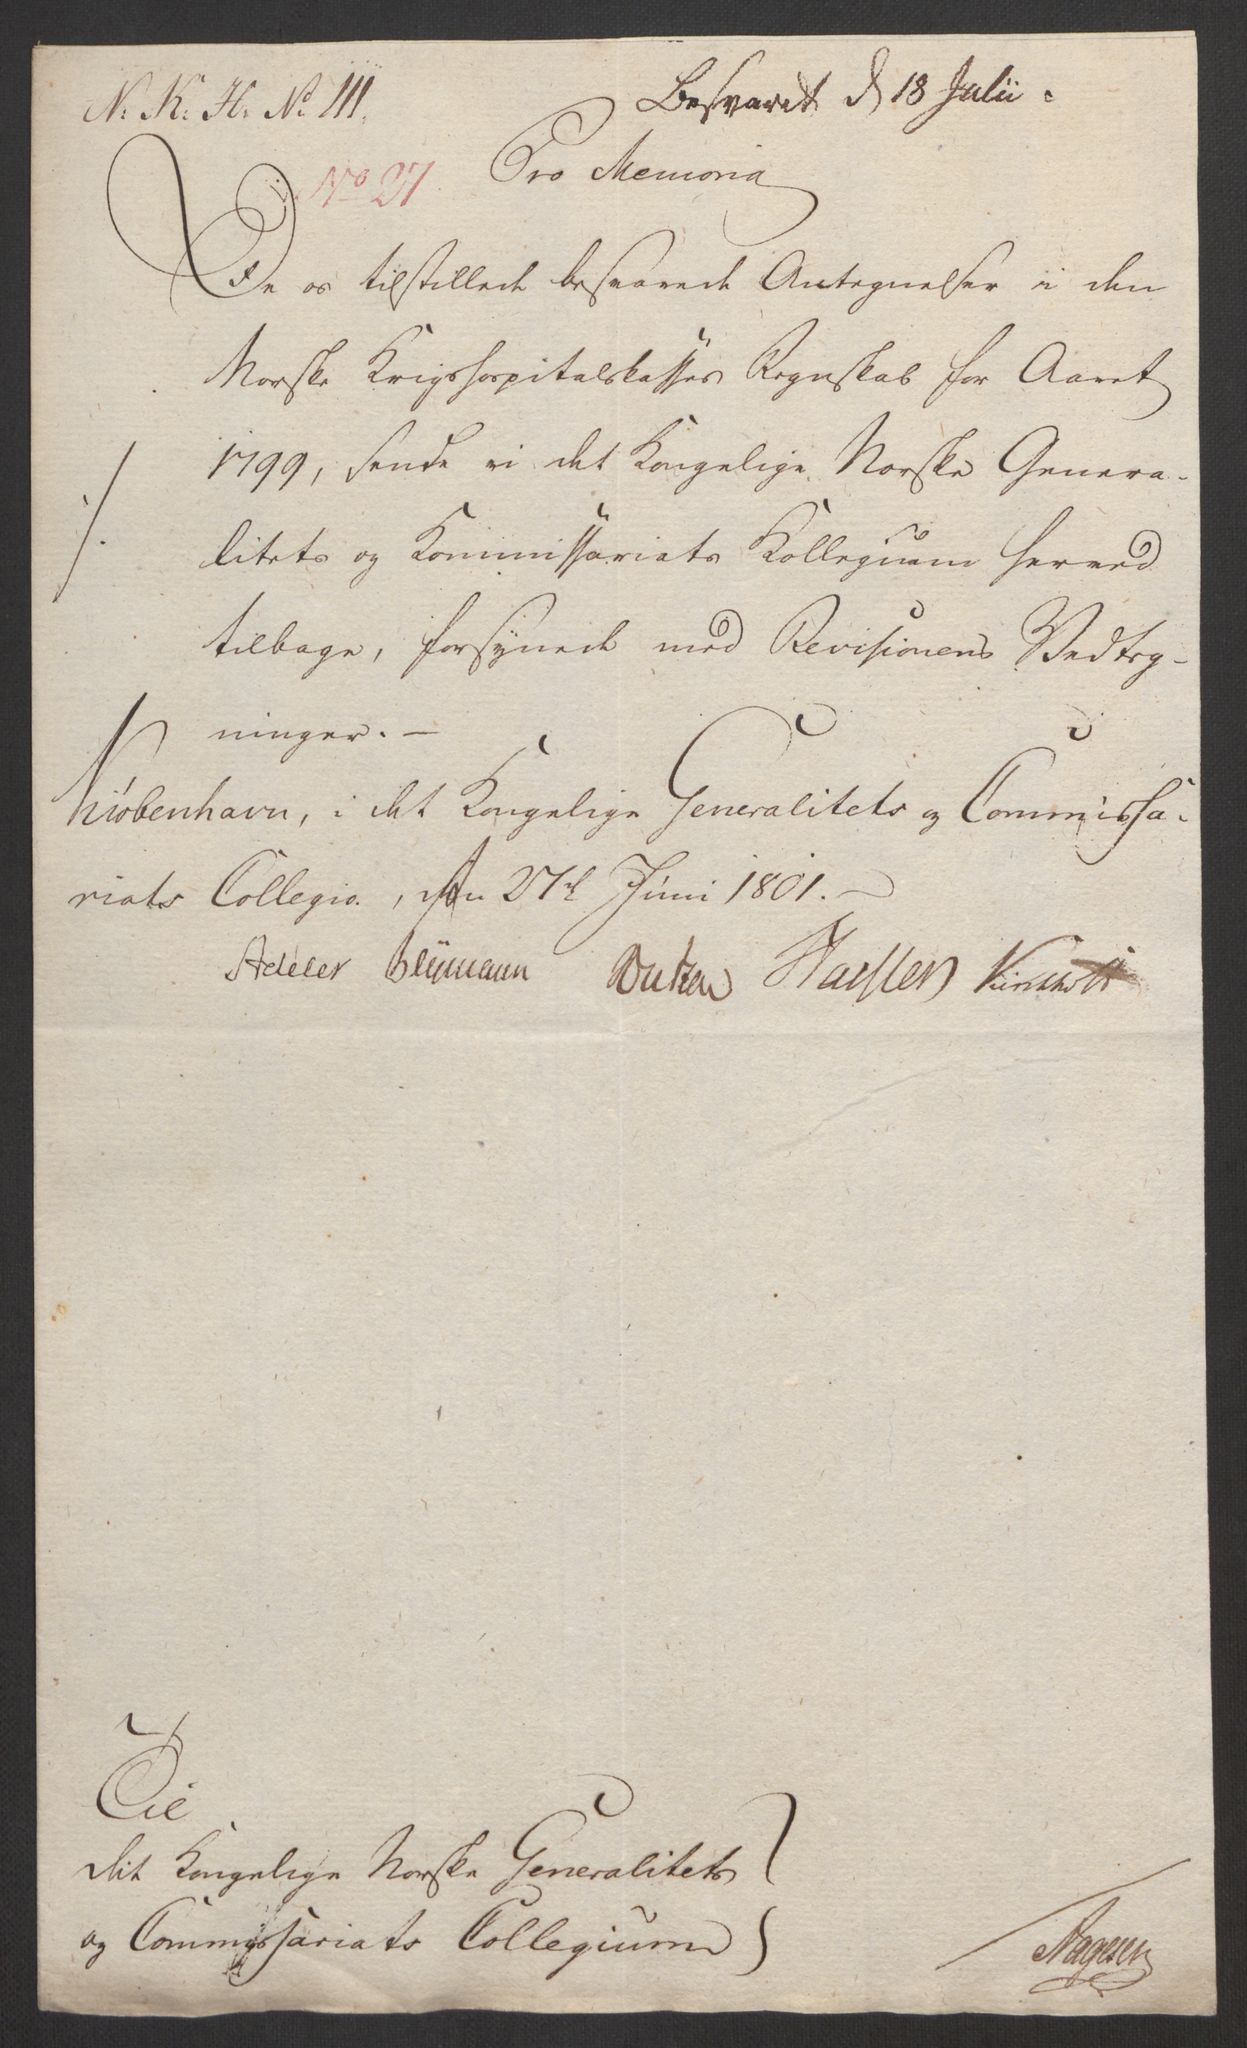 N: K: H: No 111.
Besvaret d 18 Julii.
No 27
Pro Memoria
De os tilstillede besvarede Antegnelser i den
Norske Krigshospitalskasses Regnskab for Aaret
1799, sende vi det Kongelige Norske Genera-
litets og Kommissariats Kollegium herved
tilbage, forsynede med Revisionens Vedteg-
ninger. —
Kiöbenhavn, i det Kongelige Generalitets og Commissa-
riats Collegio, den 27d Juni 1801. —
Adeler Bümann
Til
det Kongelige Norske Generalitets
og Commissariats Collegium
Aagesen